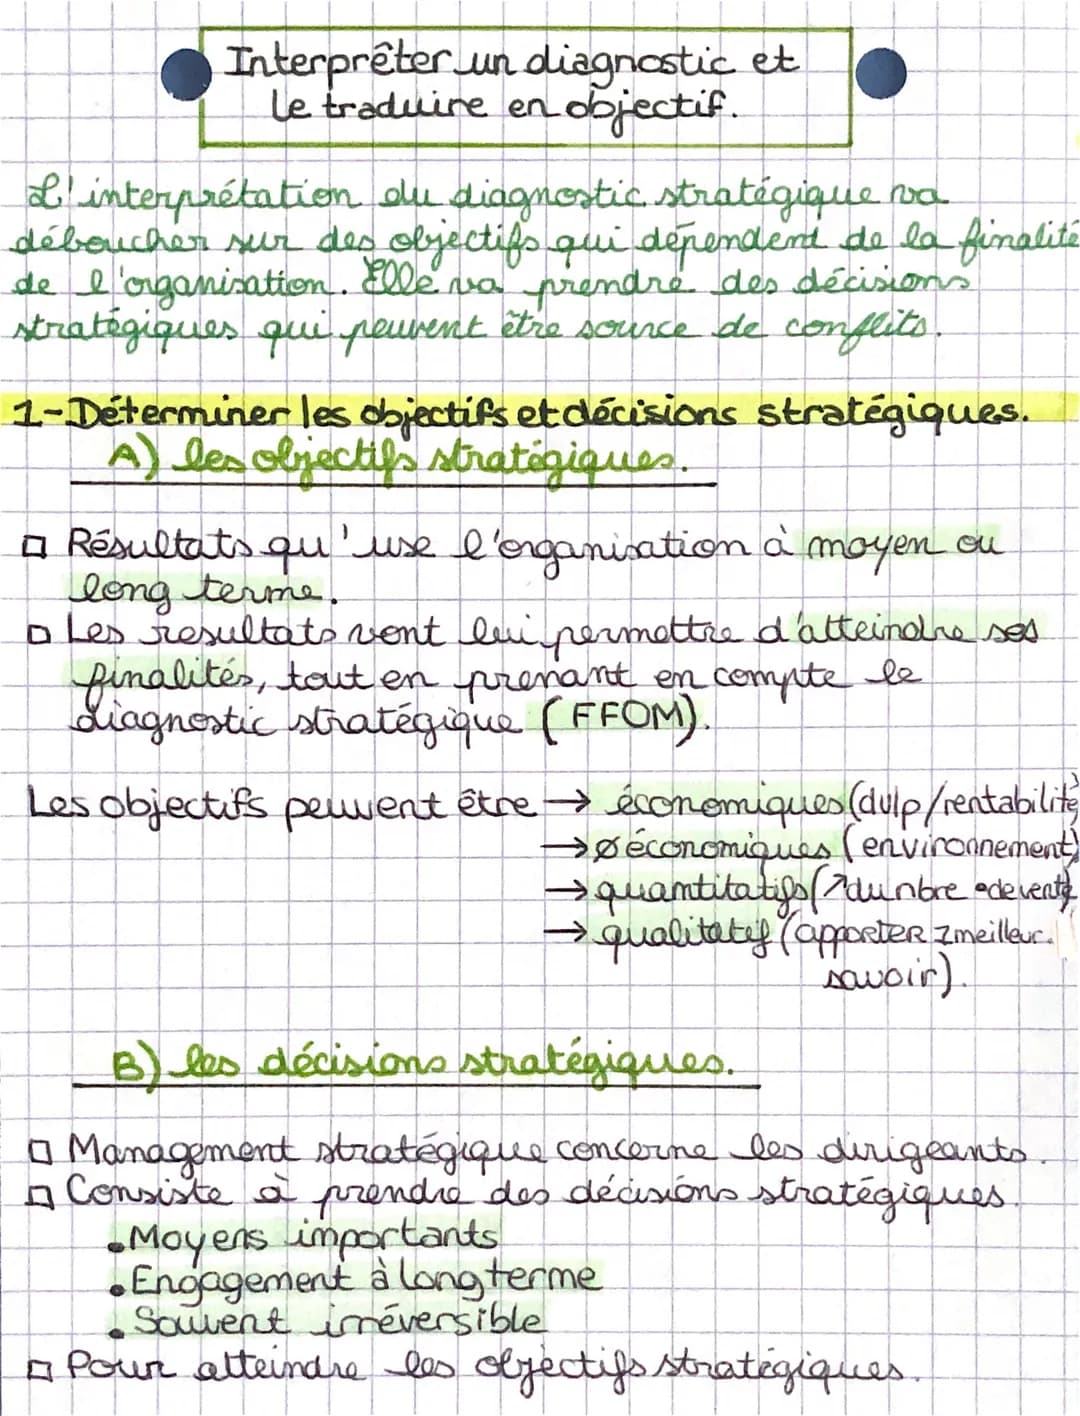 Interprêter un diagnostic et
le traduire en objectif.
L'interprétation du diagnostic stratégique va
déboucher sur des objectifs qui dépendent de la finalité
de l'organisation. Elle va prendre des décisions
stratégiques qui peuvent être source de conflits.
1-Déterminer les objectifs et décisions stratégiques.
A) les objectifs stratégiques.
Résultats qu'use l'organisation à moyen ou
long terme.
Les resultats vont lui permettre d'atteindre ses
finalités, tout en prenant en compte le
diagnostic stratégique (FFOM).
Les objectifs peuvent être → économiques (dvlp/rentabilité)
→ ø économiques (environnement)
→ quantitatifs (↗ du nbre de vente)
→ qualitatif (apporter 1 meilleur.
savoir).
B) les décisions stratégiques.
Management stratégique concerne les dirigeants.
Consiste à prendre des décisions stratégiques.
• Moyens importants
• Engagement à long terme
• Souvent irréversible
Pour atteindre les objectifs stratégiques.